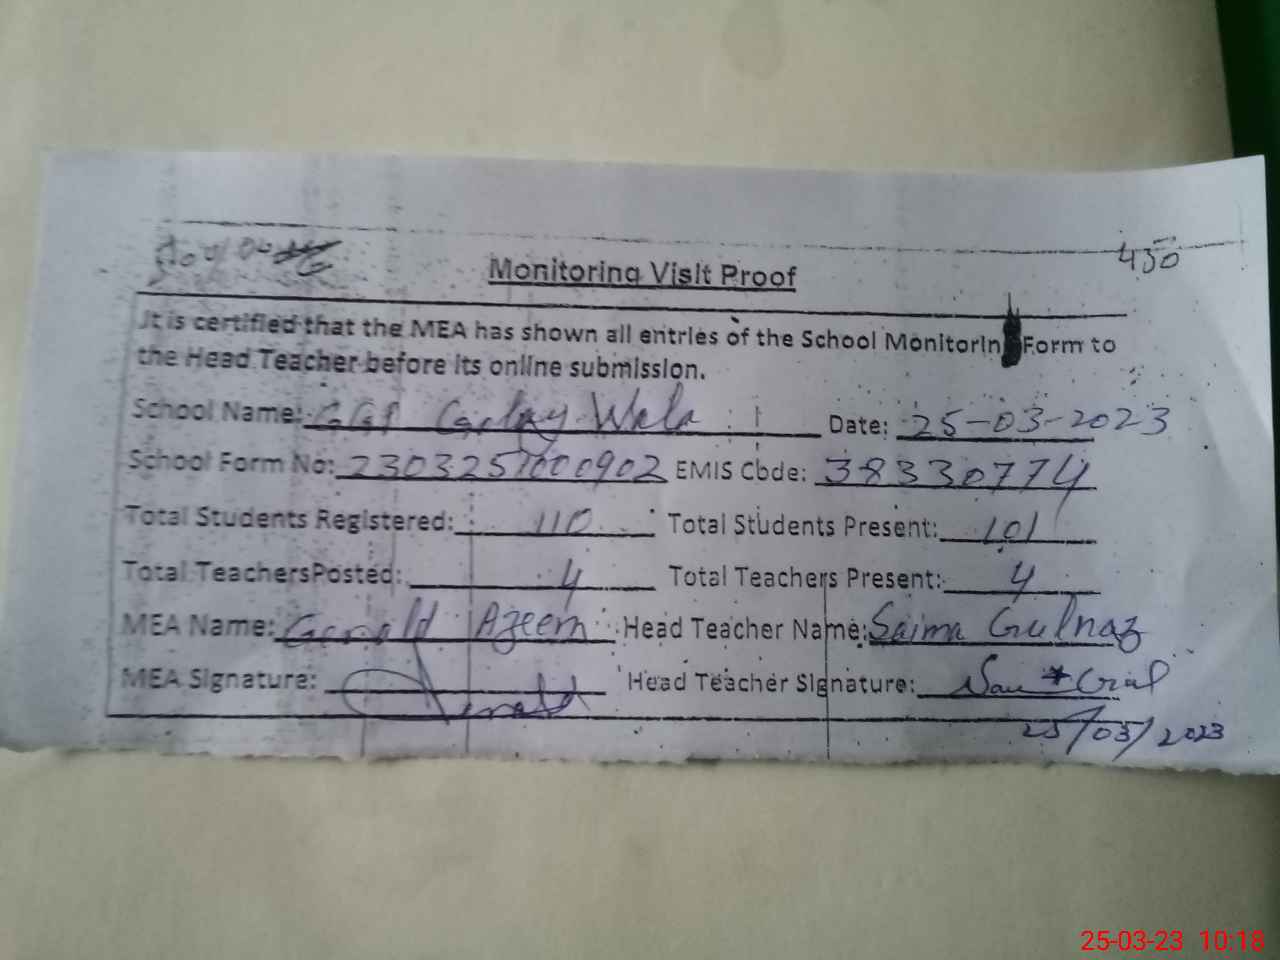 450
Monitoring Visit Proof
It is certified that the MEA has shown all entries of the School Monitorin Form to
the Head Teacher before its online submission.
School Name: Wala Date: 25-03-2023
School Form No: 2303251000902 EMIS Code: 38330774
Total Students Registered: 110 Total Students Present: 101
Total TeachersPosted: 4 Total Teachers Present: 4
MEA Name: Gerald Azeem Head Teacher Name: Saima Gulnaz
MEA Signature: Head Teacher Signature:
25/03/2023
25-03-23 10:18